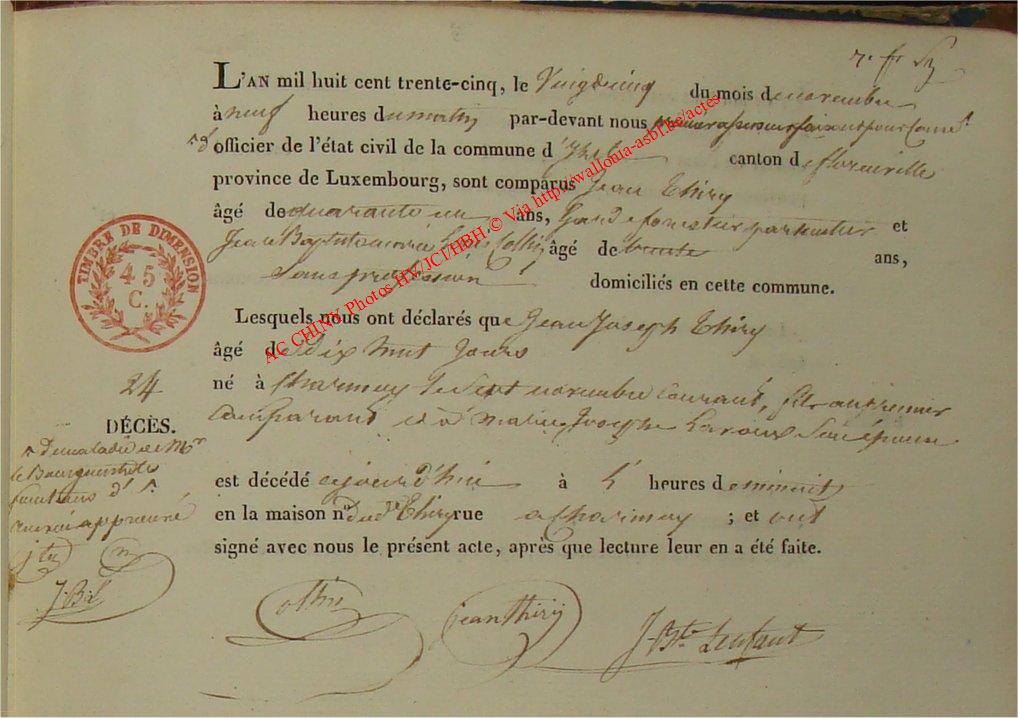 L'AN mil huit cent trente-cinq, le Vingt cinq du mois de novembre
à neuf heures du matin par-devant nous premier assesseur faisant pour cause
officier de l'état civil de la commune d'Izel canton de florenville
province de Luxembourg, sont comparus Jean Thiry
âgé de quarante un ans, Garde forestier particulier et
Jean Baptiste Collin âgé de trente ans,
Sans profession domiciliés en cette commune.
Lesquels nous ont déclarés que Jean Joseph Thiry
âgé de Dix huit jours
né à Charimay le Sept novembre courant, fils au premier
Comparant et à marie Joseph Laroux Son épouse
est décédé cejourd'hui à 5 heures de minuit
en la maison n° dud. Thiry rue a Charimay ; et ont
signé avec nous le présent acte, après que lecture leur en a été faite.
Collin jean Thiry J. Bte Lenfant
TIMBRE DE DIMENSION
45
C.
24
DÉCÈS.
De maladie de Mr
le Bourguemestre
approuvé
AC CHINY Photos HV/JCJ/HBH © Via http://wallonia-asbl.eu/actes